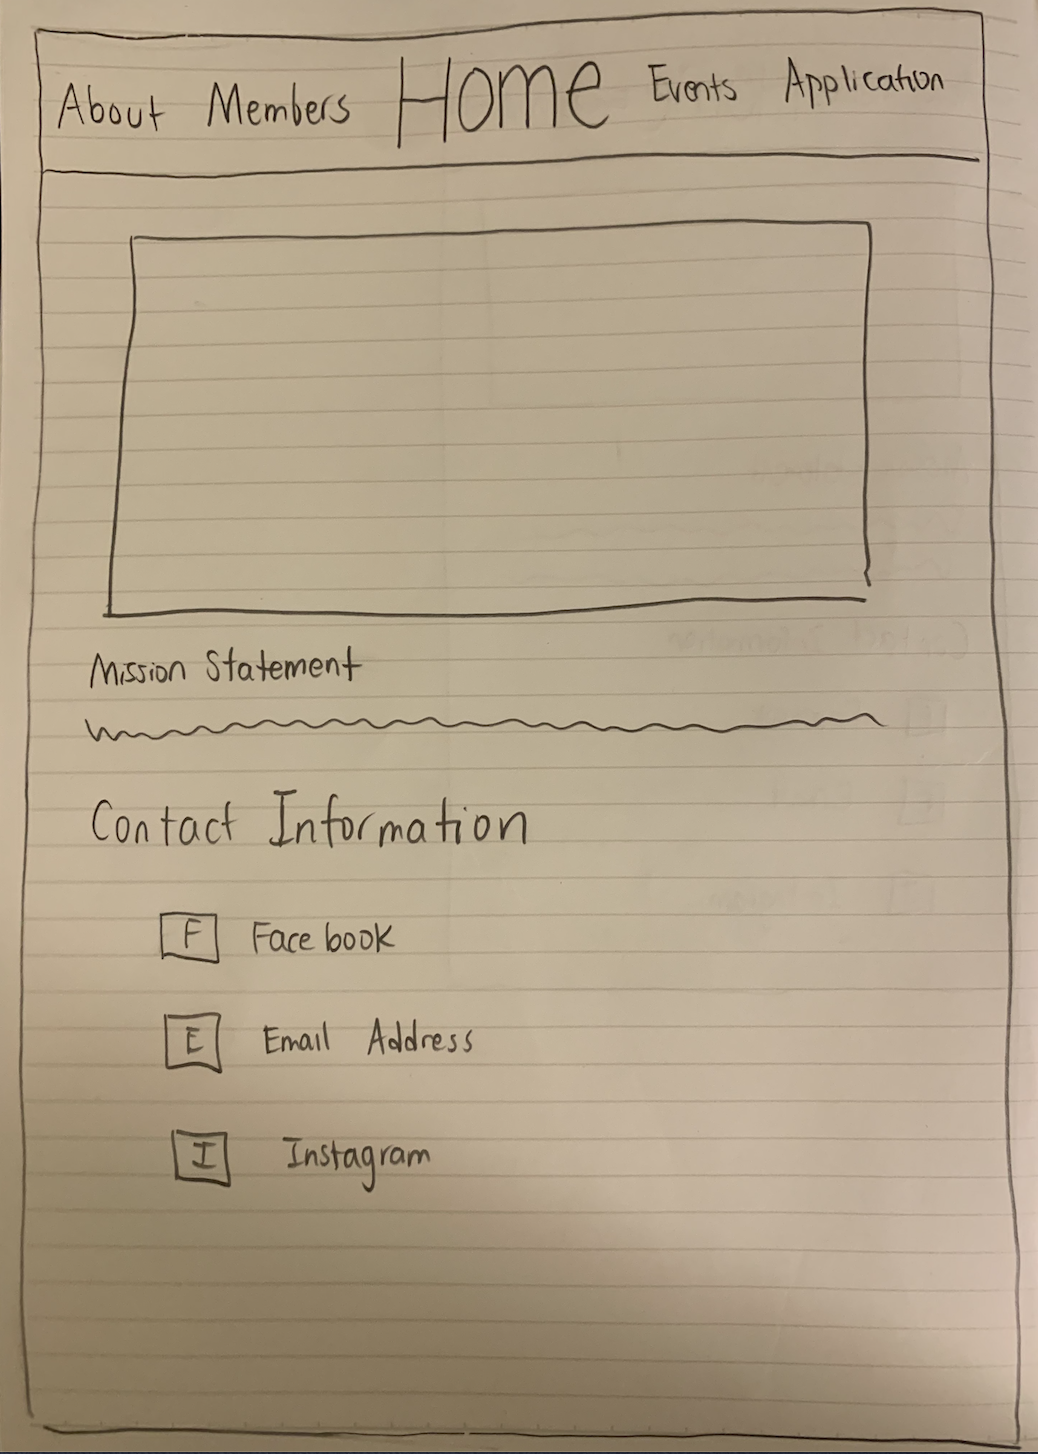 About Members Home Events Application
Mission Statement
Contact Information
F Facebook
E Email Address
I Instagram